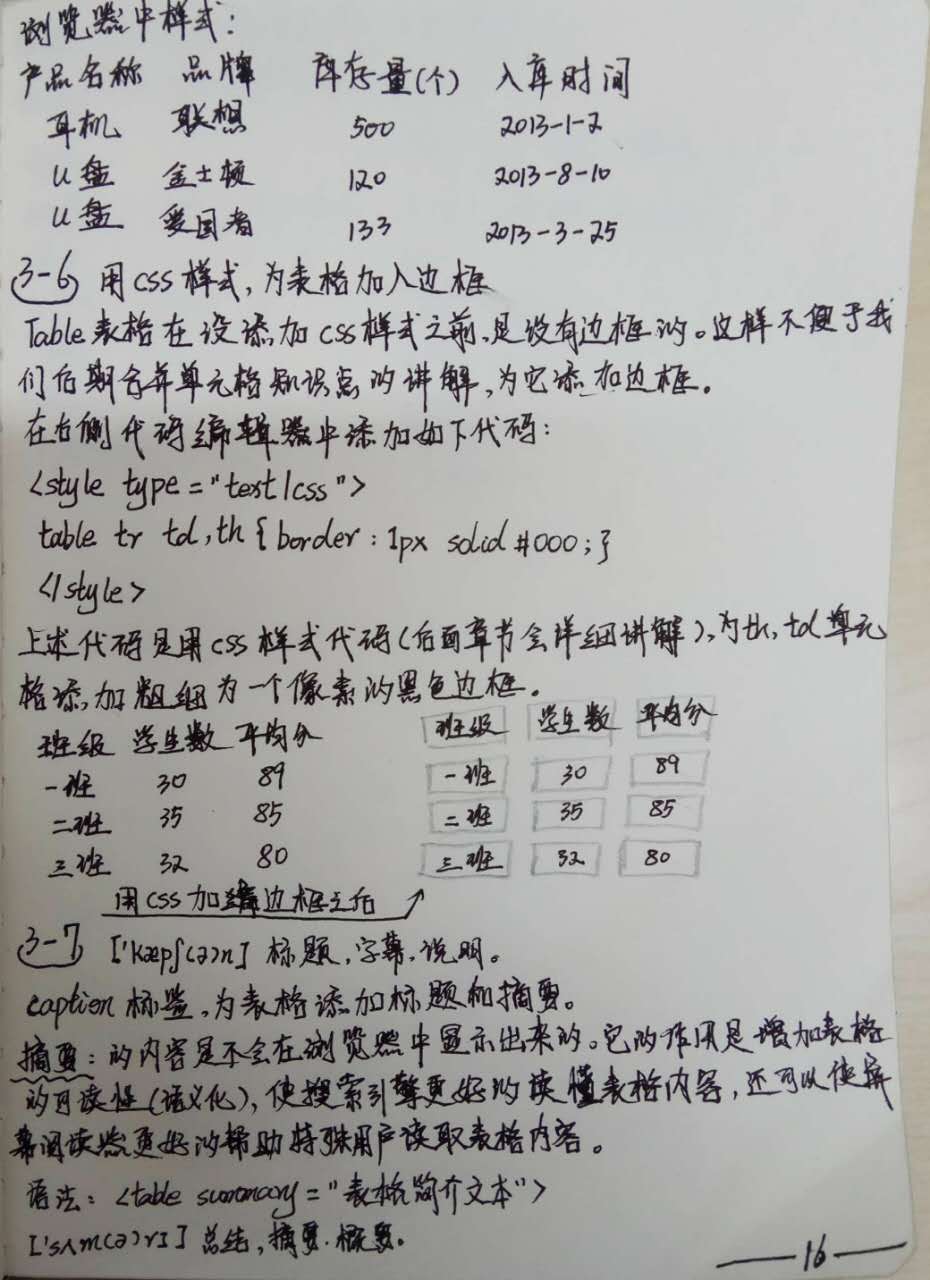 浏览器中样式:
产品名称 品牌 库存量(个) 入库时间
耳机 联想 500 2013-1-2
U盘 金士顿 120 2013-8-10
U盘 爱国者 133 2013-3-25
3-6 用css样式,为表格加入边框
Table表格在没添加css样式之前,是没有边框的。这样不便于我
们后期合并单元格知识点的讲解,为它添加边框。
在右侧代码编辑器中添加如下代码:
<style type="text/css">
table tr td,th{border:1px solid #000;}
</style>
上述代码是用css样式代码(后面章节会详细讲解),为th,td单元
格添加粗细为一个像素的黑色边框。
班级 学生数 平均分 班级 学生数 平均分
一班 30 89 一班 30 89
二班 35 85 二班 35 85
三班 32 80 三班 32 80
用css加边框之后
3-7 ['kæpʃ(ə)n] 标题,字幕,说明。
caption标签,为表格添加标题和摘要。
摘要:的内容是不会在浏览器中显示出来的。它的作用是增加表格
的可读性(语义化),使搜索引擎更好的读懂表格内容,还可以使屏
幕阅读器更好的帮助特殊用户读取表格内容。
语法:<table summary="表格简介文本">
['sʌm(ə)rɪ] 总结,摘要.概要。
16